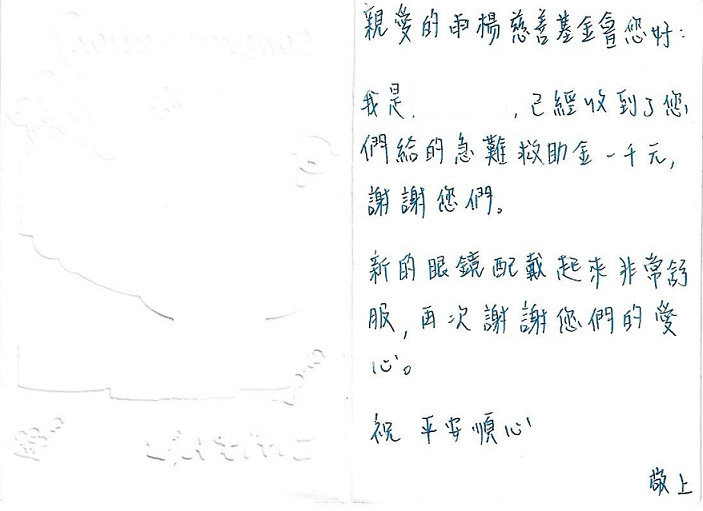 親愛的雨楊慈善基金會您好：
我是 ，已經收到了您
們給的急難救助金一千元，
謝謝您們。
新的眼鏡配戴起來非常舒
服，再次謝謝您們的愛
心。
祝 平安順心
敬上